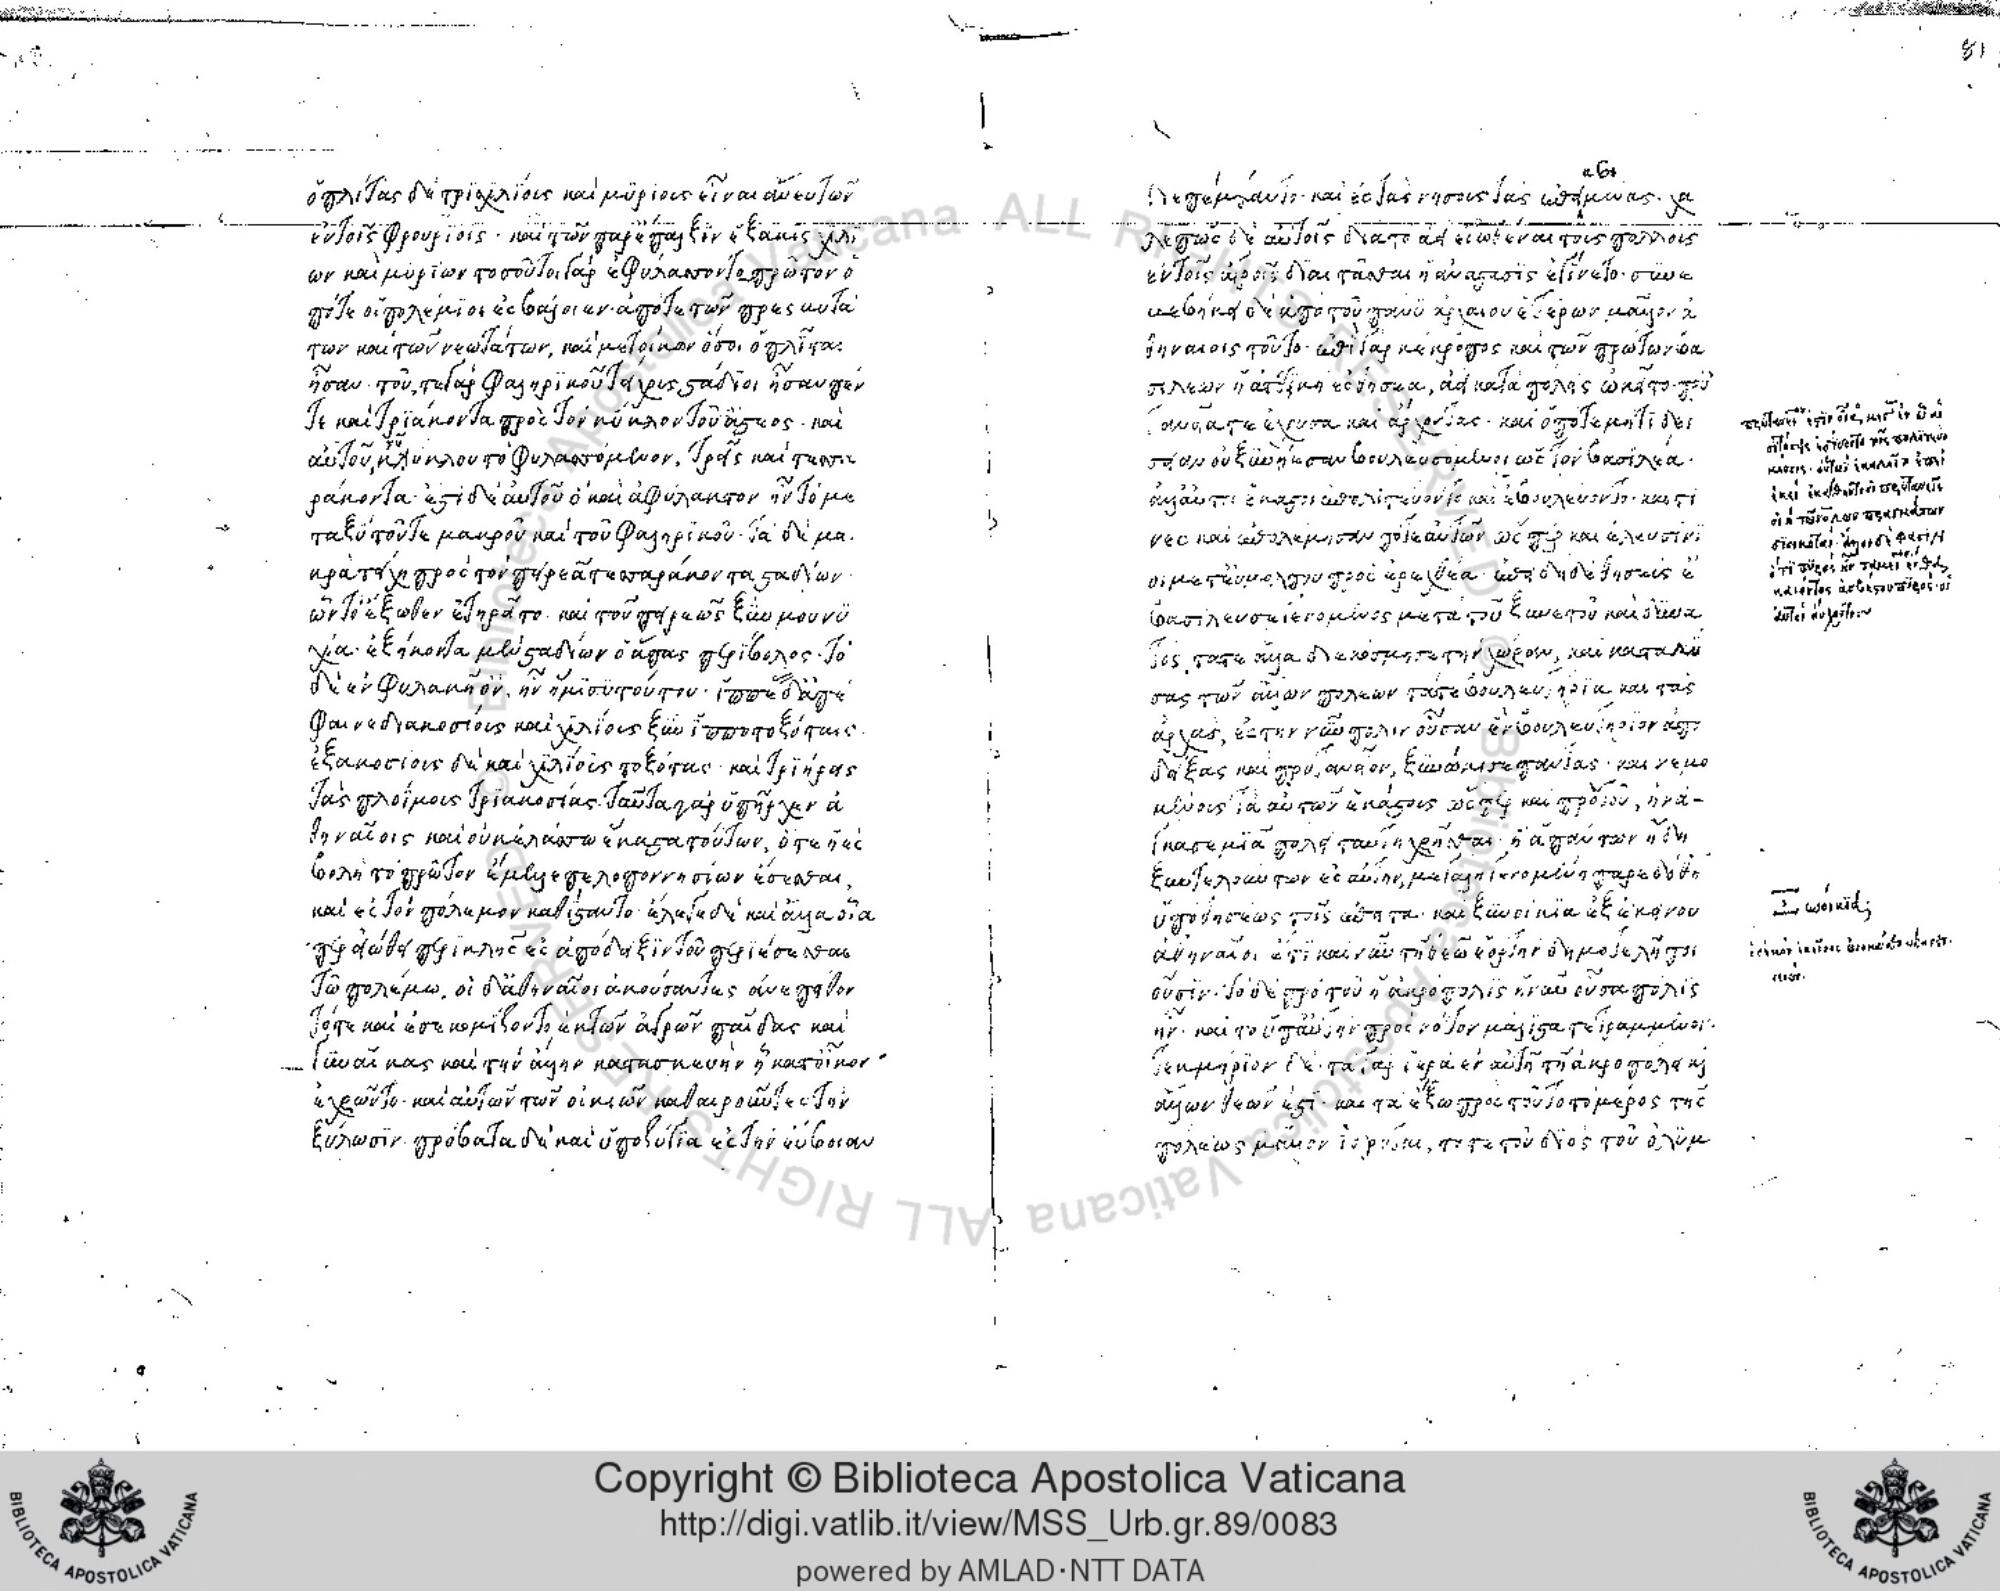 ὁπλίτας δὲ τρισχιλίους καὶ μυρίους εἶναι ἄνευ τῶν
ἐν τοῖς φρουρίοις· καὶ τῶν παρ' ἔπαλξιν ἑξακισχιλί
ων καὶ μυρίων τοσοῦτοι γὰρ ἐφύλασσον τὸ πρῶτον ὁ
πότε οἱ πολέμιοι ἐσβάλοιεν· ἀπό τε τῶν πρεσβυτά
των καὶ τῶν νεωτάτων, καὶ μετοίκων ὅσοι ὁπλῖται
ἦσαν· τοῦ τε γὰρ φαληρικοῦ τείχους στάδιοι ἦσαν πέν
τε καὶ τριάκοντα πρὸς τὸν κύκλον τοῦ ἄστεος· καὶ
αὐτοῦ τοῦ κύκλου τὸ φυλασσόμενον, τρεῖς καὶ τεσσα
ράκοντα· ἔστι δὲ αὐτοῦ ὃ καὶ ἀφύλακτον ἦν τὸ με
ταξὺ τοῦ τε μακροῦ καὶ τοῦ φαληρικοῦ· τὰ δὲ μα
κρὰ τείχη πρὸς τὸν πειραιᾶ τεσσαράκοντα σταδίων·
ὧν τὸ ἔξωθεν ἐτηρεῖτο· καὶ τοῦ πειραιῶς ξὺν μουνυ
χίᾳ· ἑξήκοντα μὲν σταδίων ὁ ἅπας περίβολος· τὸ
δὲ ἐν φυλακῇ ὂν, ἦν ἥμισυ τούτου· ἱππέας δ' ἀπέ
φαινε διακοσίους καὶ χιλίους ξὺν ἱπποτοξόταις·
ἑξακοσίους δὲ καὶ χιλίους τοξότας· καὶ τριήρεις
τὰς πλοΐμους τριακοσίας· ταῦτα γὰρ ὑπῆρχεν ἀ
θηναίοις καὶ οὐκ ἐλάσσω ἕκαστα τούτων, ὅτε ἡ ἐσ
βολὴ τὸ πρῶτον ἔμελλε πελοποννησίων ἔσεσθαι,
καὶ ἐς τὸν πόλεμον καθίσταντο· ἔλεγε δὲ καὶ ἄλλα οἷα
περ εἰώθει περικλῆς ἐς ἀπόδειξιν τοῦ περιέσεσθαι
τῷ πολέμῳ. οἱ δ' ἀθηναῖοι ἀκούσαντες ἀνεπείθον
τό τε καὶ ἐσεκομίζοντο ἐκ τῶν ἀγρῶν παῖδας καὶ
γυναῖκας καὶ τὴν ἄλλην κατασκευὴν ᾗ κατ' οἶκον
ἐχρῶντο· καὶ αὐτῶν τῶν οἰκιῶν καθαιροῦντες τὴν
ξύλωσιν· πρόβατα δὲ καὶ ὑποζύγια ἐς τὴν εὔβοιαν
81
διεπέμψαντο· καὶ ἐς τὰς νήσους τὰς ἐπικειμένας· χα
λεπῶς δὲ αὐτοῖς διὰ τὸ ἀεὶ εἰωθέναι τοὺς πολλοὺς
ἐν τοῖς ἀγροῖς διαιτᾶσθαι ἡ ἀνάστασις ἐγίγνετο· ξυνε
βεβήκει δὲ ἀπὸ τοῦ πάνυ ἀρχαίου ἑτέρων μᾶλλον ἀ
θηναίοις τοῦτο· ἐπὶ γὰρ κέκροπος καὶ τῶν πρώτων βα
σιλέων ἡ ἀττικὴ ἐς θησέα, ἀεὶ κατὰ πόλεις ᾠκεῖτο· πρυ
τανεῖά τε ἔχουσα καὶ ἄρχοντας· καὶ ὁπότε μή τι δεί
σειαν οὐ ξυνῄεσαν βουλευσόμενοι ὡς τὸν βασιλέα·
ἀλλ' αὐτοὶ ἕκαστοι ἐπολιτεύοντο καὶ ἐβουλεύοντο· καί τι
νες καὶ ἐπολέμησάν ποτε αὐτῶν ὥσπερ καὶ ἐλευσίνι
οι μετ' εὐμόλπου πρὸς ἐρεχθέα· ἐπειδὴ δὲ θησεὺς ἐ
βασίλευσε γενόμενος μετὰ τοῦ ξυνετοῦ καὶ δυνα
τὸς, τά τε ἄλλα διεκόσμησε τὴν χώραν, καὶ καταλύ
σας τῶν ἄλλων πόλεων τά τε βουλευτήρια καὶ τὰς
ἀρχὰς, ἐς τὴν νῦν πόλιν οὖσαν ἓν βουλευτήριον ἀπο
δείξας καὶ πρυτανεῖον, ξυνῴκισε πάντας· καὶ νεμο
μένους τὰ αὑτῶν ἑκάστους ὥσπερ καὶ πρὸ τοῦ, ἠνά
γκασε μιᾷ πόλει ταύτῃ χρῆσθαι· ἣ ἁπάντων ἤδη
ξυντελούντων ἐς αὐτὴν, μεγάλη γενομένη παρεδόθη
ὑπὸ θησέως τοῖς ἔπειτα· καὶ ξυνοίκια ἐξ ἐκείνου
ἀθηναῖοι ἔτι καὶ νῦν τῇ θεῷ ἑορτὴν δημοτελῆ ποι
οῦσιν· τὸ δὲ πρὸ τοῦ ἡ ἀκρόπολις ἡ νῦν οὖσα πόλις
ἦν· καὶ τὸ ὑπ' αὐτὴν πρὸς νότον μάλιστα τετραμμένον·
τεκμήριον δέ· τὰ γὰρ ἱερὰ ἐν αὐτῇ τῇ ἀκροπόλει καὶ
ἄλλων θεῶν ἐστί· καὶ τὰ ἔξω πρὸς τοῦτο τὸ μέρος τῆς
πόλεως μᾶλλον ἵδρυται, τό τε τοῦ διὸς τοῦ ὀλυμ
Copyright © Biblioteca Apostolica Vaticana
http://digi.vatlib.it/view/MSS_Urb.gr.89/0083
powered by AMLAD·NTT DATA
BIBLIOTECA APOSTOLICA VATICANA
BIBLIOTECA APOSTOLICA VATICANA